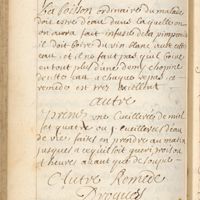 La boisson ordinaire du malade
doit estre d'eau dans laquelle on
en aura fait infuse de la pimpren
il doit boire du vin blanc autre cette
eau, et il ne faut pas que boive
en tout plus d'une demy chopine
de cette eau a chaque repas ce
remede est tres excellent
autre
prend une Cueilleree de miel
et quatre ou 5 cueilleres d'eau
de vie faites en prendre au matin
jusques a ce qu'il soit guery trois ou
4 heures avant que de soupe
Autre Remede
Drogues